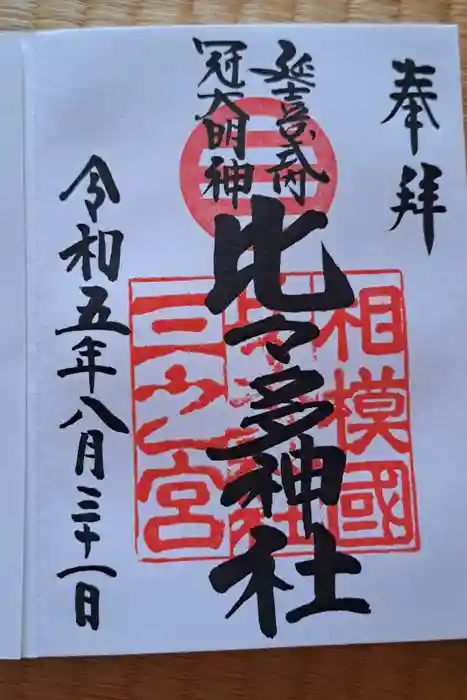 奉拝
延喜式内
冠大明神
比々多神社
令和五年八月三十一日
相模國
三之宮